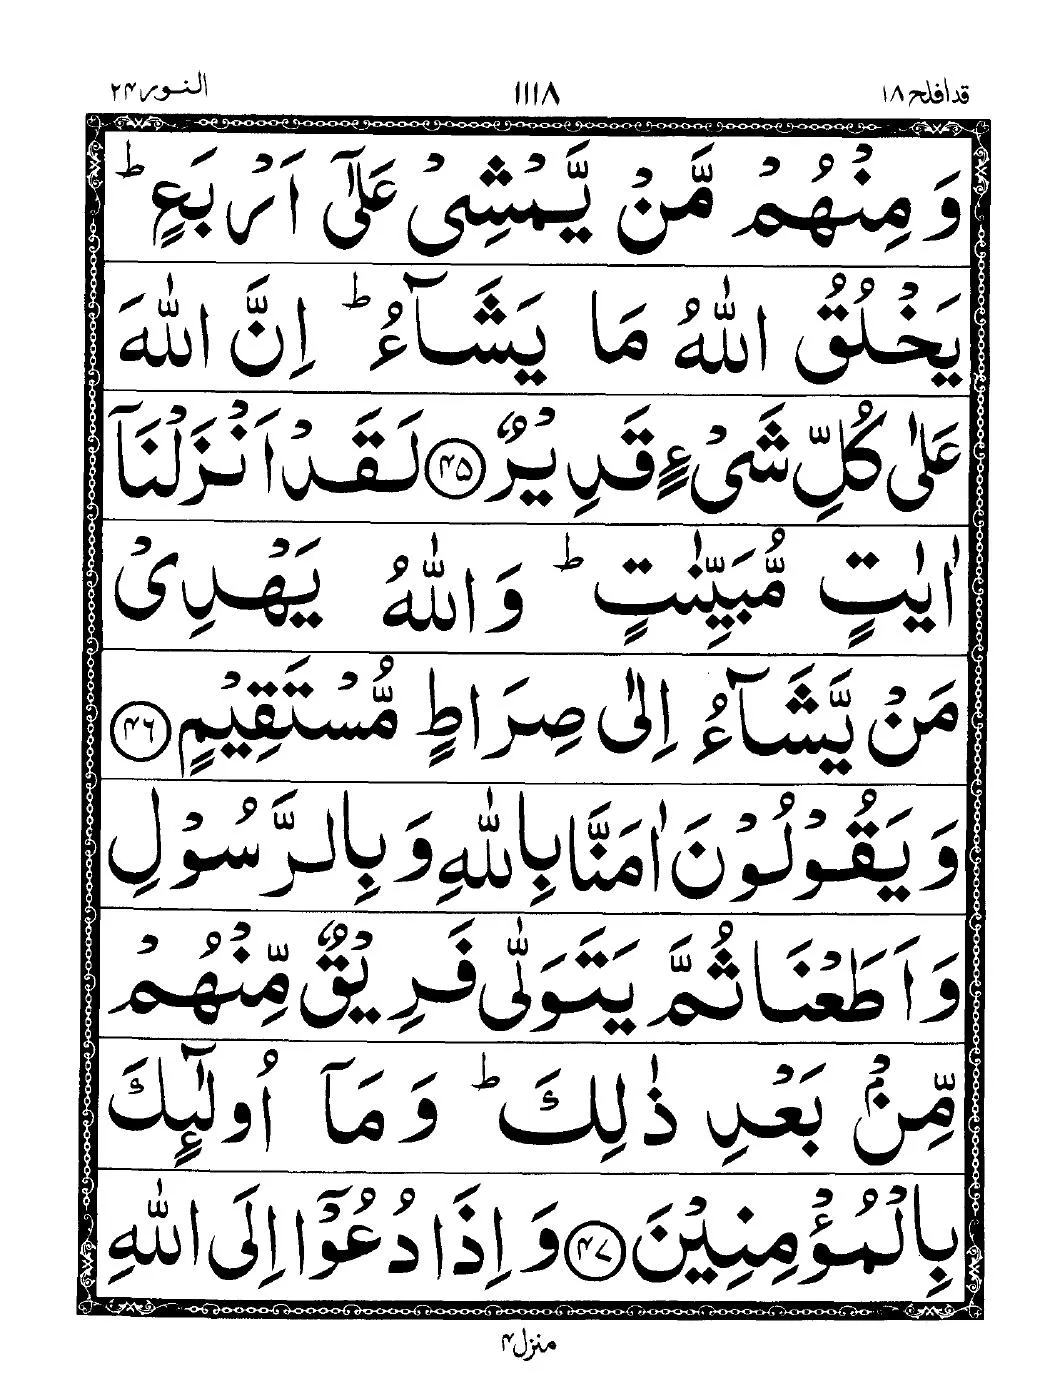 قد افلح ١٨
١١١٨
النور ٢٤
وَ مِنْهُمْ مَّنْ يَّمْشِیْ عَلٰۤی اَرْبَعٍ ؕ
یَخْلُقُ اللّٰهُ مَا یَشَآءُ ؕ اِنَّ اللّٰهَ
عَلٰی كُلِّ شَیْءٍ قَدِیْرٌ ﴿۴۵﴾ لَقَدْ اَنْزَلْنَاۤ
اٰیٰتٍ مُّبَیِّنٰتٍ ؕ وَ اللّٰهُ یَهْدِیْ
مَنْ یَّشَآءُ اِلٰی صِرَاطٍ مُّسْتَقِیْمٍ ﴿۴۶﴾
وَ یَقُوْلُوْنَ اٰمَنَّا بِاللّٰهِ وَ بِالرَّسُوْلِ
وَ اَطَعْنَا ثُمَّ یَتَوَلّٰی فَرِیْقٌ مِّنْهُمْ
مِّنْۢ بَعْدِ ذٰلِكَ ؕ وَ مَاۤ اُولٰٓئِكَ
بِالْمُؤْمِنِیْنَ ﴿۴۷﴾ وَ اِذَا دُعُوْۤا اِلَی اللّٰهِ
منزل ۴